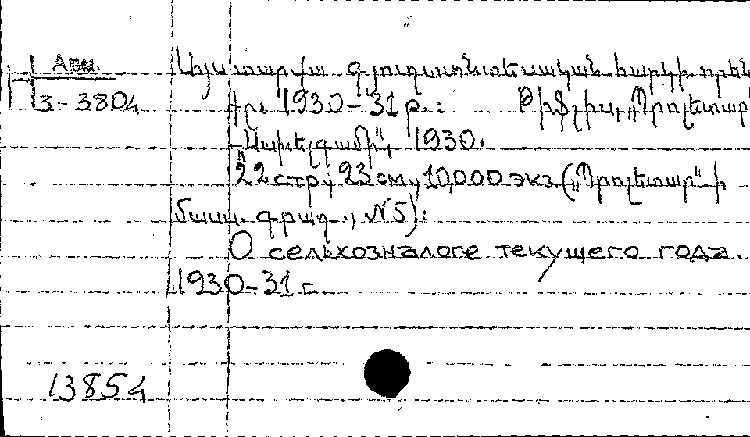 Арм.
3-3804
Այս տարվա գյուղատնտեսական հարկի որեն
քը 1930-31 թ.: Թիֆլիս, „Պրոլետար"
1930.
22 стр, 23 см, 10,000 экз. („Պրոլետար"-ի
մատ. գրադ., №5):
О сельхозналоге текущего года.
1930-31 г.
13854